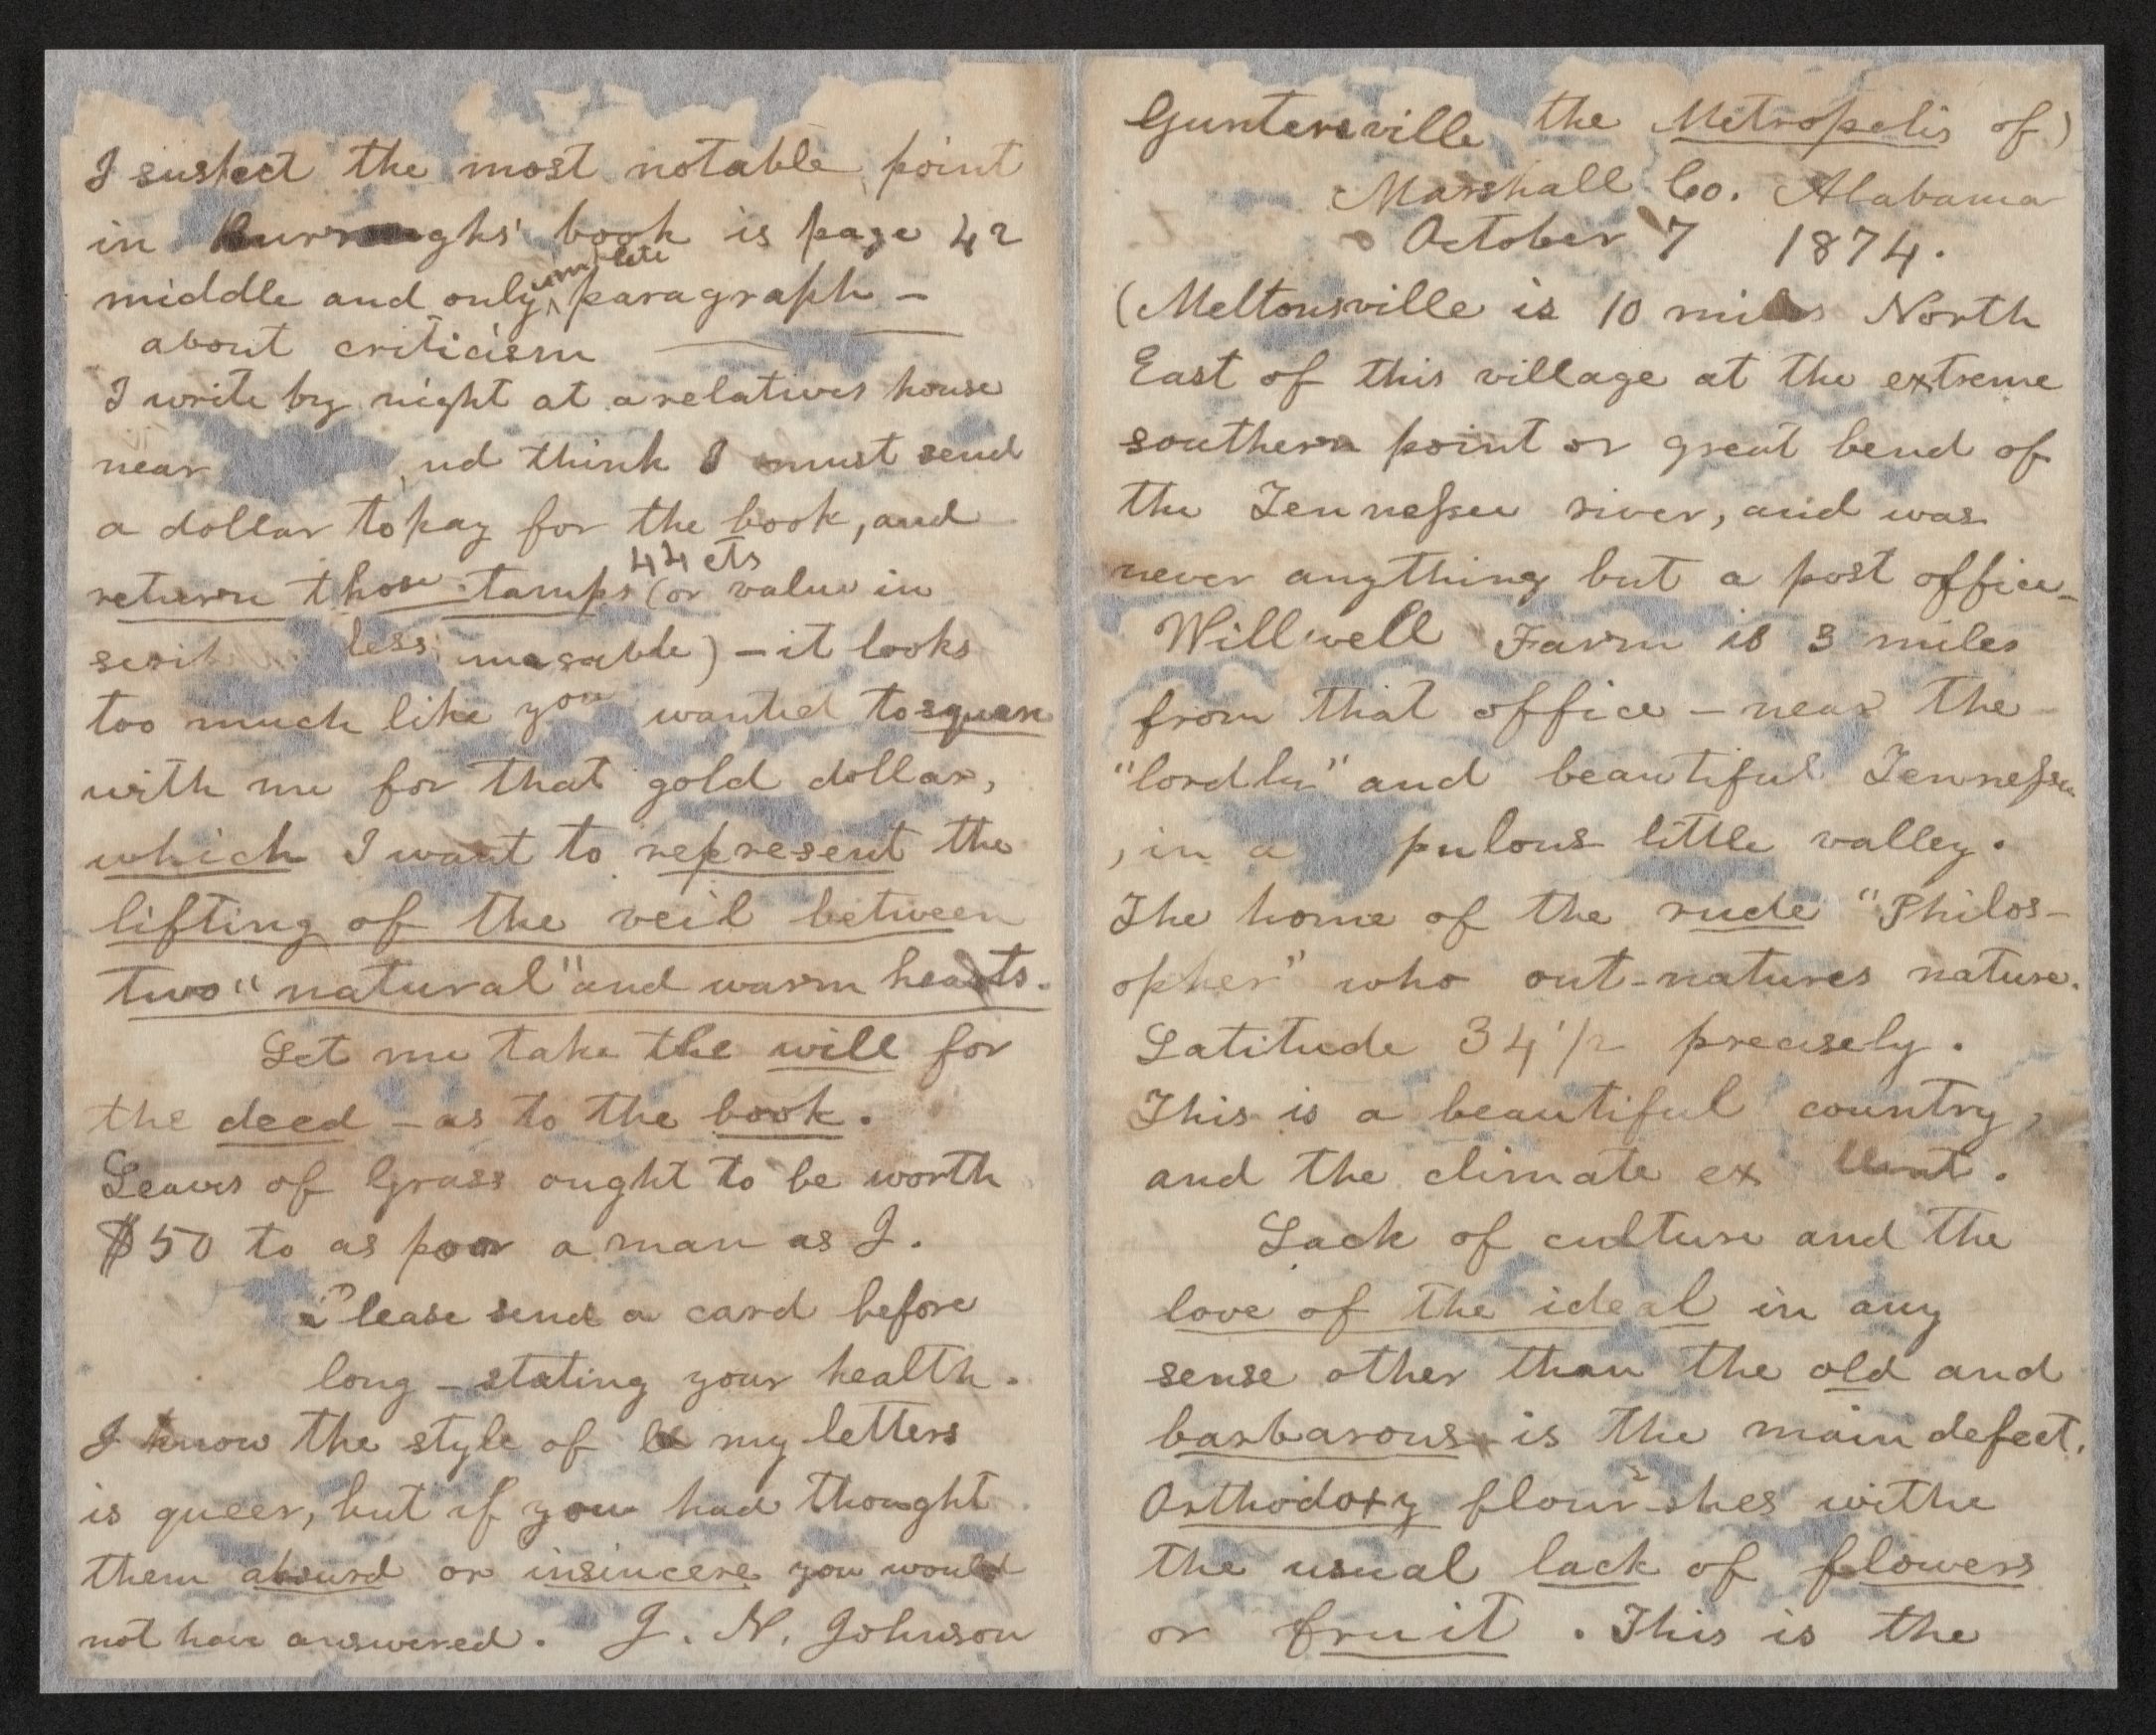 I suspect the most notable point
in Burroughs' book is page 42
middle and only complete paragraph —
about criticism
I write by night at a relatives house
near ud think I must send
a dollar to pay for the book, and
return those stamps 44 cts (or value in
less unusable) — it looks
too much like you wanted to square
with me for that gold dollar,
which I want to represent the
lifting of the veil between
two "natural" and warm hearts.
Let me take the will for
the deed — as to the book.
Leaves of Grass ought to be worth
$50 to as poor a man as I.
Please send a card before
long — stating your health.
I know the style of my letters
is queer, but if you had thought
them absurd or insincere you would
not have answered. J. N. Johnson
Guntersville the Metropolis of)
Marshall Co. Alabama
October 7 1874.
(Meltonsville is 10 miles North
East of this village at the extreme
southern point or great bend of
the Tennessee river, and was
never anything but a post office—
Willwell Farm is 3 miles
from that office — near the
"lordly" and beautiful Tennessee
, in a pulous little valley.
The home of the rude "Philos-
opher" who out-natures nature.
Latitude 34 1/2 precisely.
This is a beautiful country,
and the climate ex llent.
Lack of culture and the
love of the ideal in any
sense other than the old and
barbarous is the main defect.
Orthodoxy flourishes withe
the usual lack of flowers
or fruit. This is the